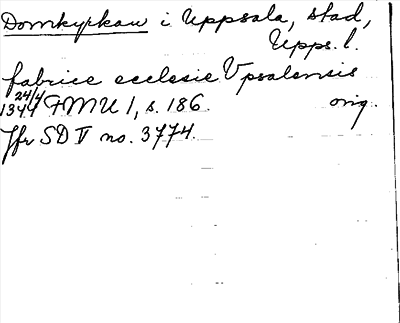 Domkyrkan i Uppsala, stad,
Upps. l.
fabrice ecclesie Vpsalensis
24/4
1344 FMU 1, s. 186. orig.
Jfr SD V no. 3774.